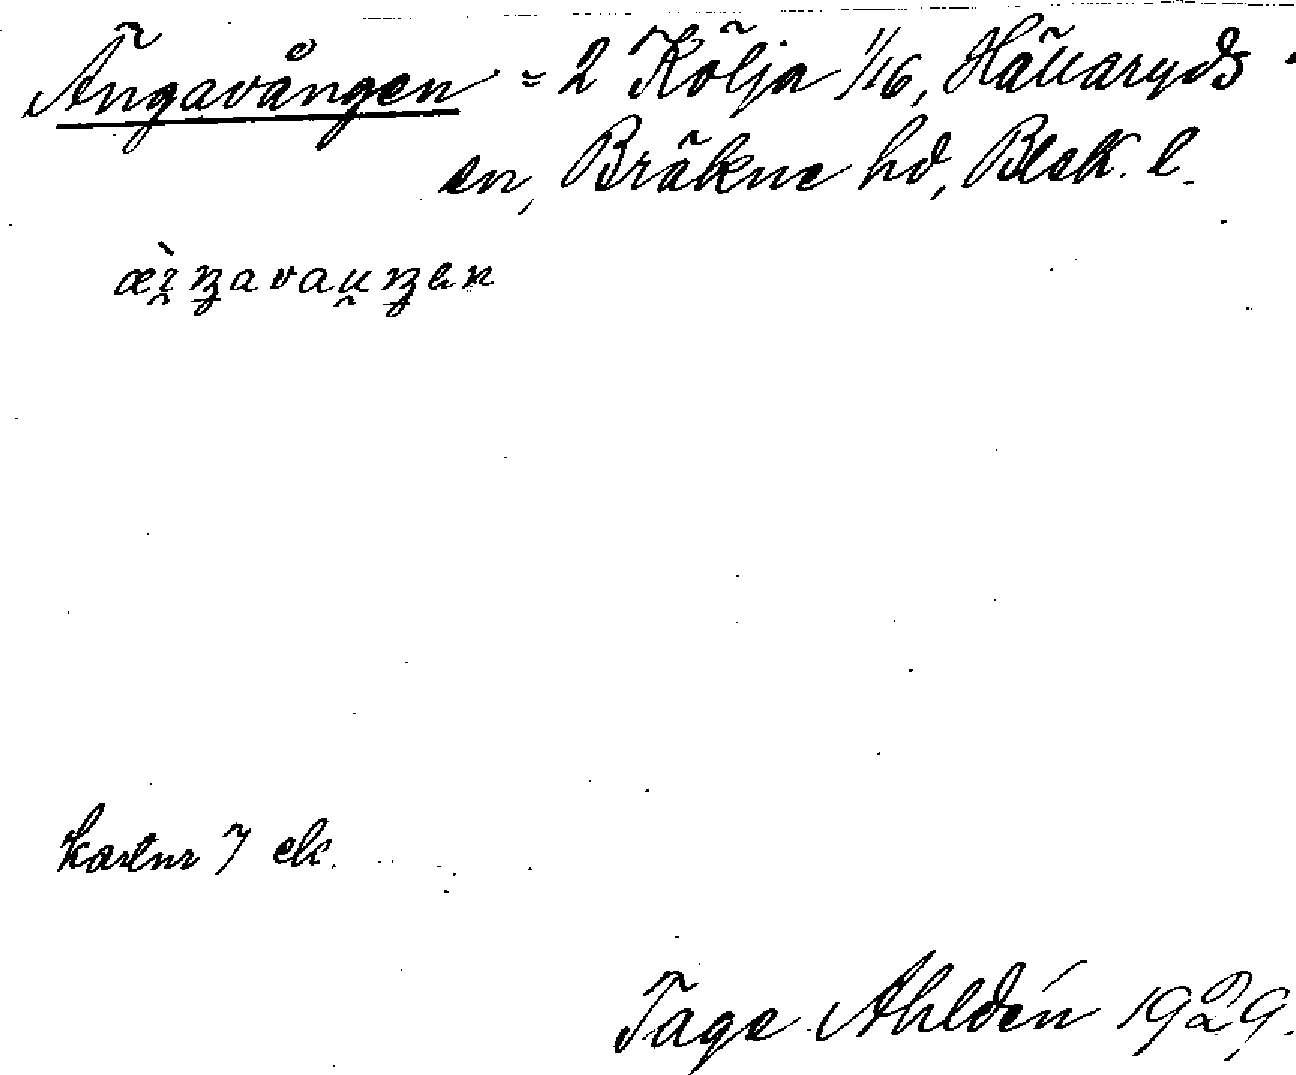 Ängavången = 2 Kölja 1/16, Hällaryds
sn, Bräkne hd, Blek. l.
kartnr 7 ek.
Tage Ahldén 1929.